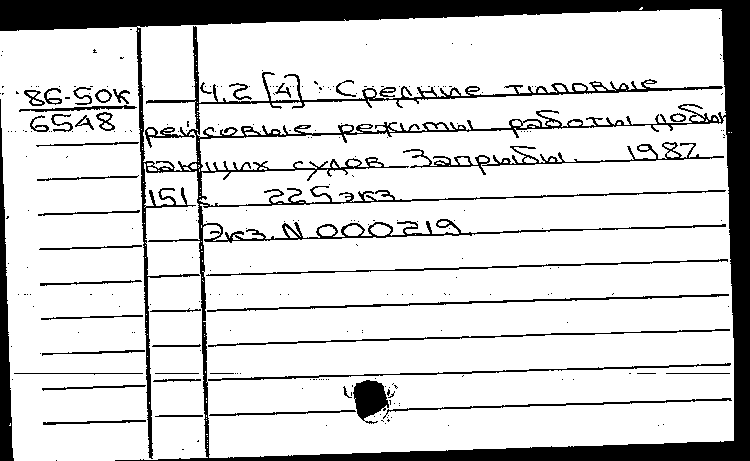 86-50к
6548
Ч.2 [4] : Средние типовые
рейсовые режимы работы добы
вающих судов Запрыбы. 1987.
151 с. 225 экз.
Экз. N 000219.